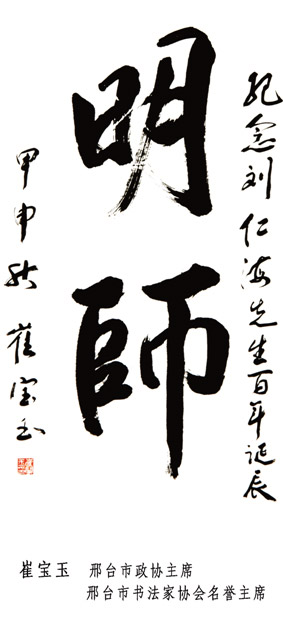 纪念刘仁海先生百年诞辰
明師
甲申秋 崔宝玉
崔宝玉 邢台市政协主席
邢台市书法家协会名誉主席